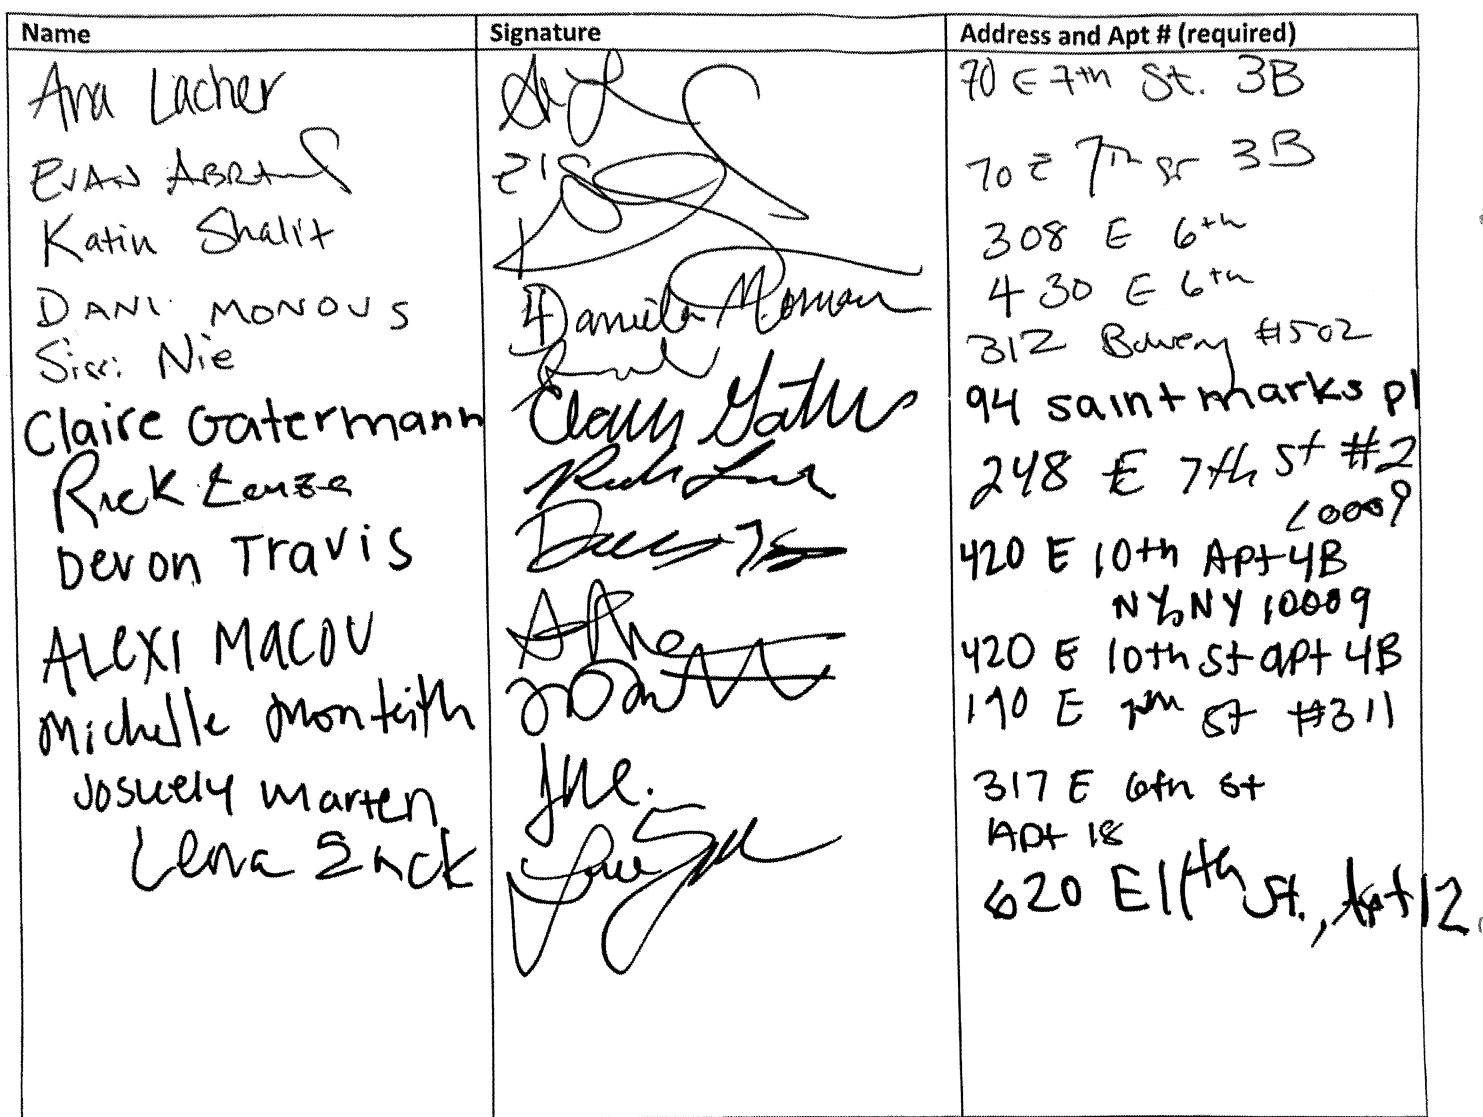 Name Signature Address and Apt # (required)
Ana Lacher 70 E 7th St. 3B
EVAN ABRAMS 70 E 7th ST 3B
Katin Shalit 308 E 6th
DANI MONOUS Daniela 430 E 6th
Sissi Nie 312 Bowery #502
Claire Gatermann 94 saint marks pl
Rick 248 E 7th St #2
10009
Devon Travis 420 E 10th Apt 4B
NY, NY 10009
ALEXI MACOU 420 E 10th St apt 4B
Michelle Monteith 190 E 7th St #311
Josuely Marten 317 E 6th St
Apt 18
Lena Zack 620 E 11th St., Apt 12